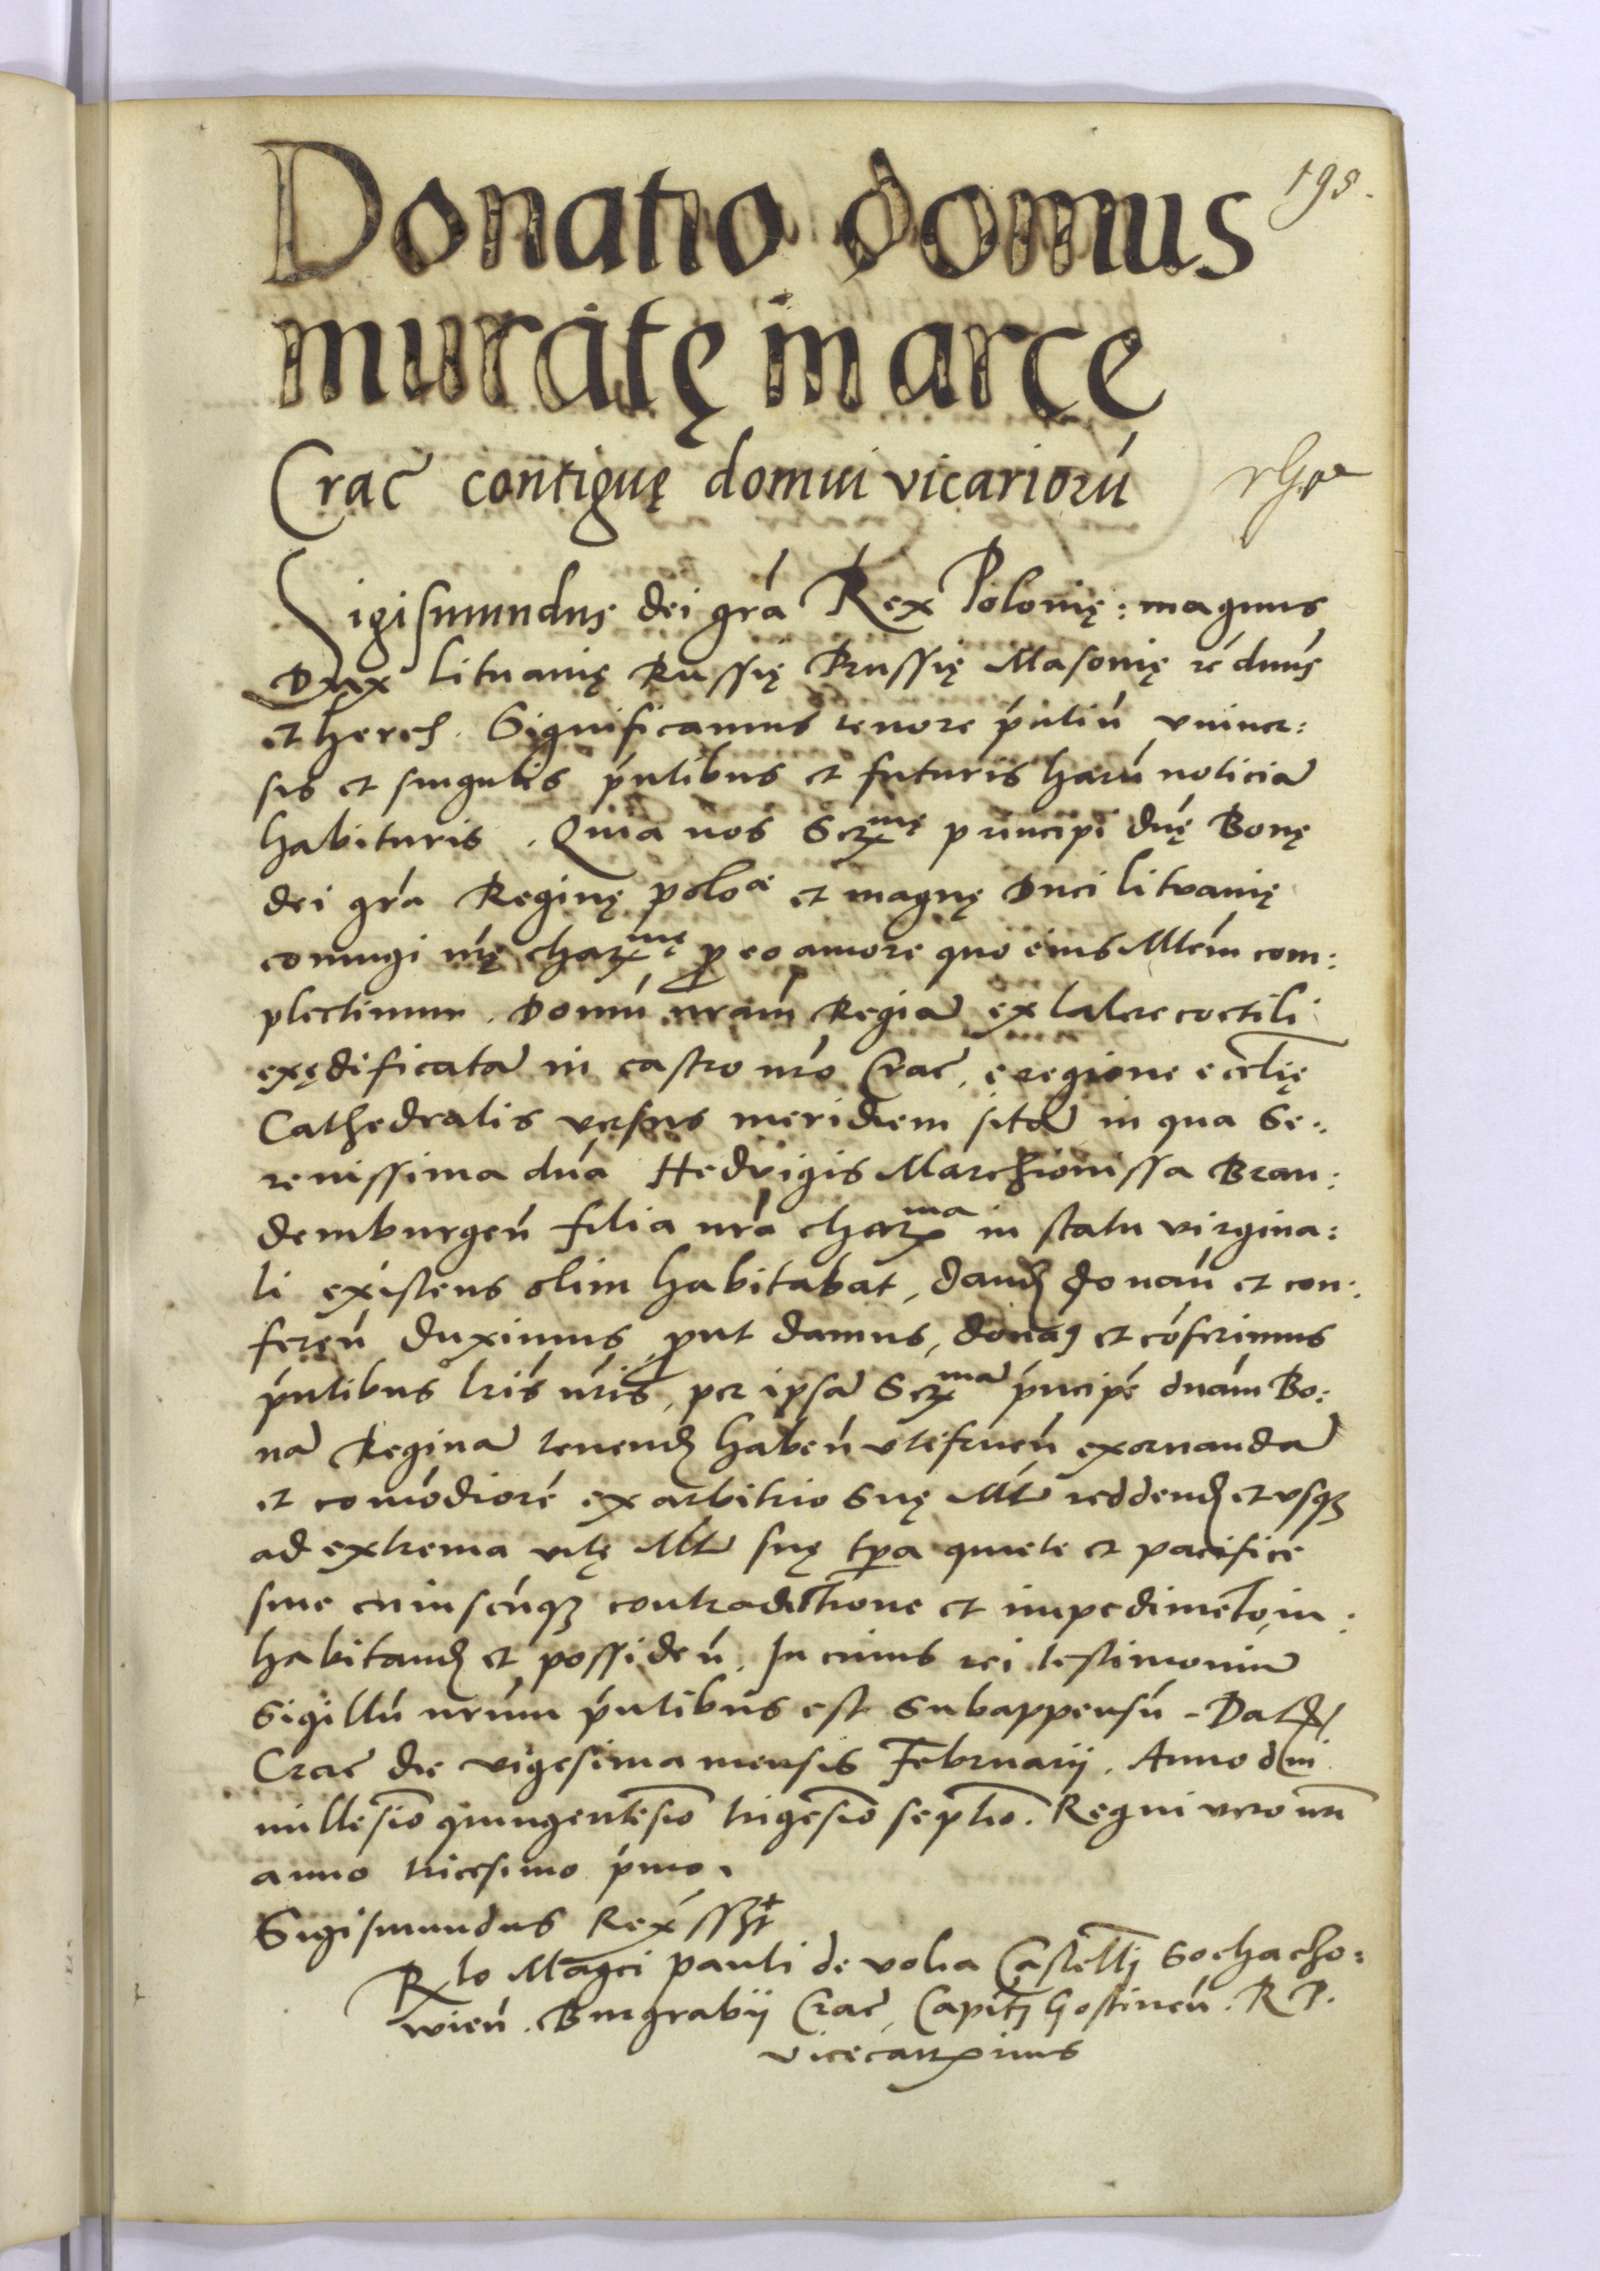 Donatio domus
195.
muratę in arce
Crac̄ contiguę domui vicariorú
Sigismundus dei gŕa Rex Polonię: magnus
Dux Lituanię Russię Prussię Masovię ꝛc dńus
et heres. Significamus tenore ṕntiú vniuer:
sis et singulis ṕntibus et futuris harú noticiā
habituris. Quia nos Serᵐᵉ principi dńę Bonę
dei gŕa Reginę poloᵉ et magnę Duci Lituanię
coniugi ńrę charᵐᵉ ꝓ eo amore quo eius Mtém com:
plectimur. Domú nrám Regiā ex latere coctili
exędificatā in castro nŕo Crac̄, e regione ecclię
Cathedralis versus meridiem sitā in qua Se:
renissima dńa Hedvigis Marchionissa Bran:
demburgeń filia nŕa charᵐᵃ in statu virgina:
li existens olim habitabat, dand̄ donań et con:
fereń duximus, ꝓut damus, donaꝯ et cóferimus
ṕntibus lŕis nŕis, per ipsā Serᵐᵃ́ ṕncipé dnám Bo:
nā Reginā tenend̄ habeń vtifrueń exornandā
et comódioré ex arbitrio Suę Mtis reddend̄ et vsqꝫ
ad extrema vitę Mtis suę tꝑa quiete et pacifice
sine cuiuscúqꝫ contradictione et impedimēto, in:
habitand̄ et possideń. In cuius rei testimoniū
Sigillú nrúm ṕntibus est Subappensú. Dat̄
Crac̄ die vigesima mensis Februarij. Anno dńi
millesīo quingentesīo trigesīo septīo. Regni vero nrī
anno tricesimo ṕmo.
Sigismundus Rex́ sszt
Rlo Magci pauli de volia Castellj Sochacho:
wień. Burgrabij Crac̄, Capitj Gostineń. R P.
vicecancrius